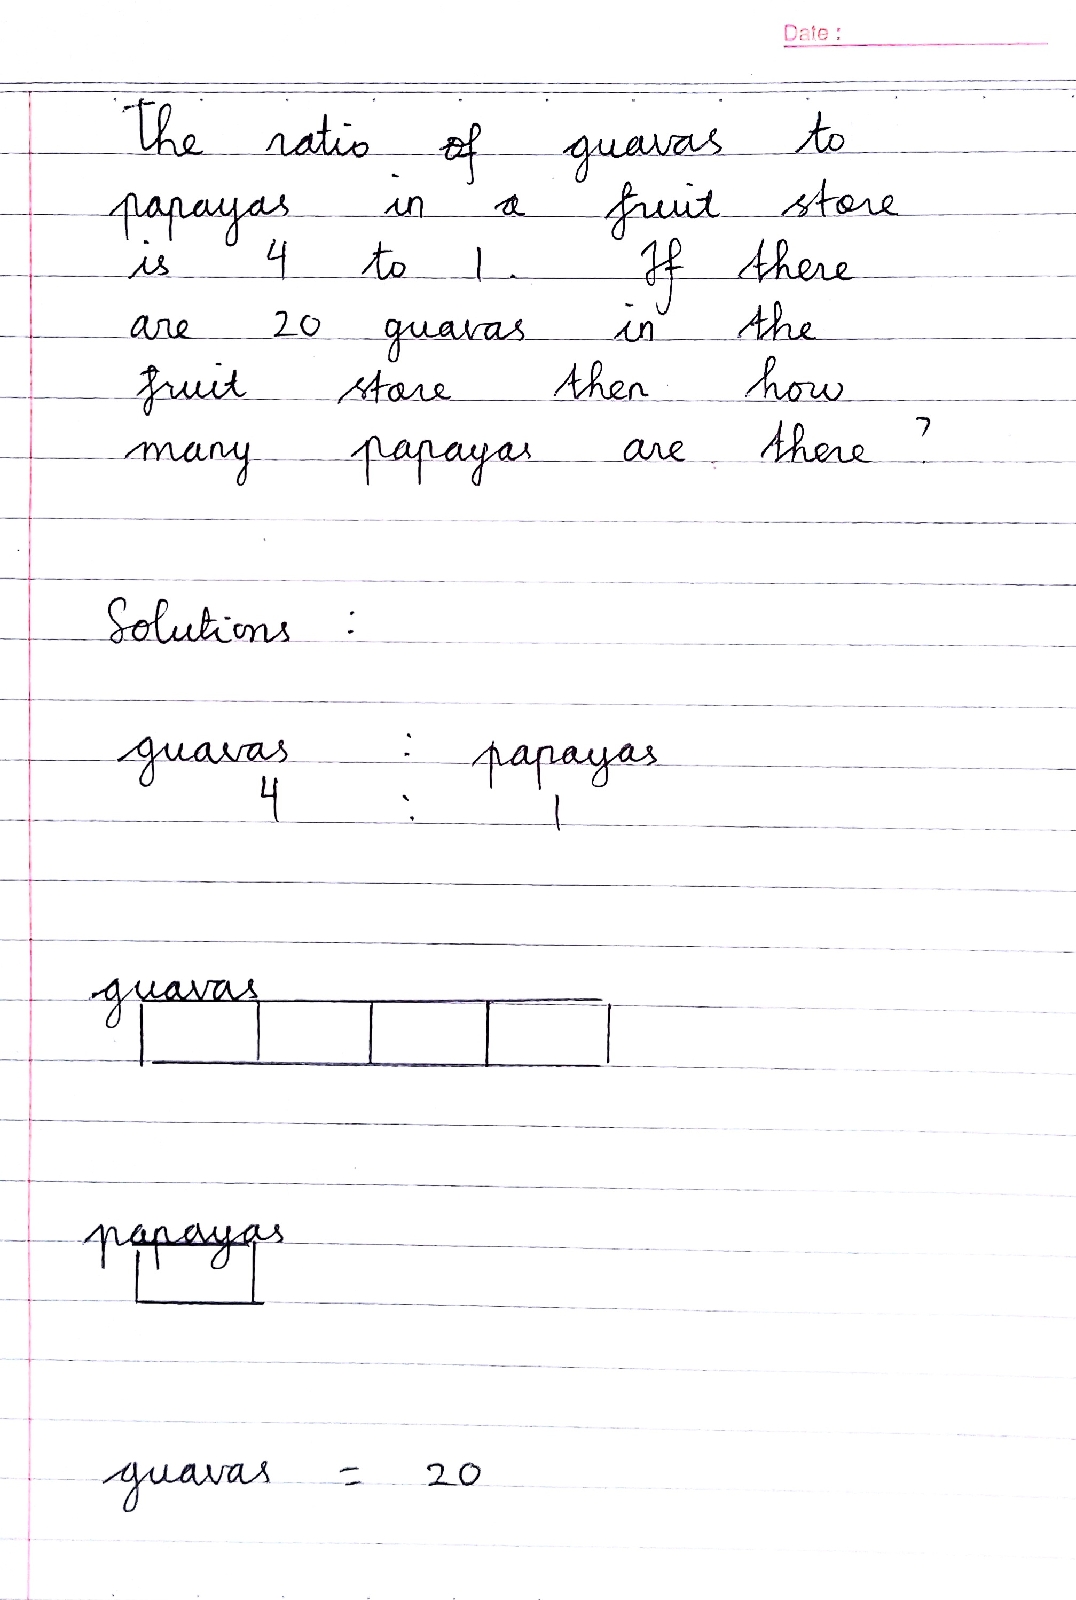 Date :
The ratio of guavas to
papayas in a fruit store
is 4 to 1. If there
are 20 guavas in the
fruit store then how
many papayas are there ?
Solutions :
guavas : papayas
4 : 1
guavas
papayas
guavas = 20